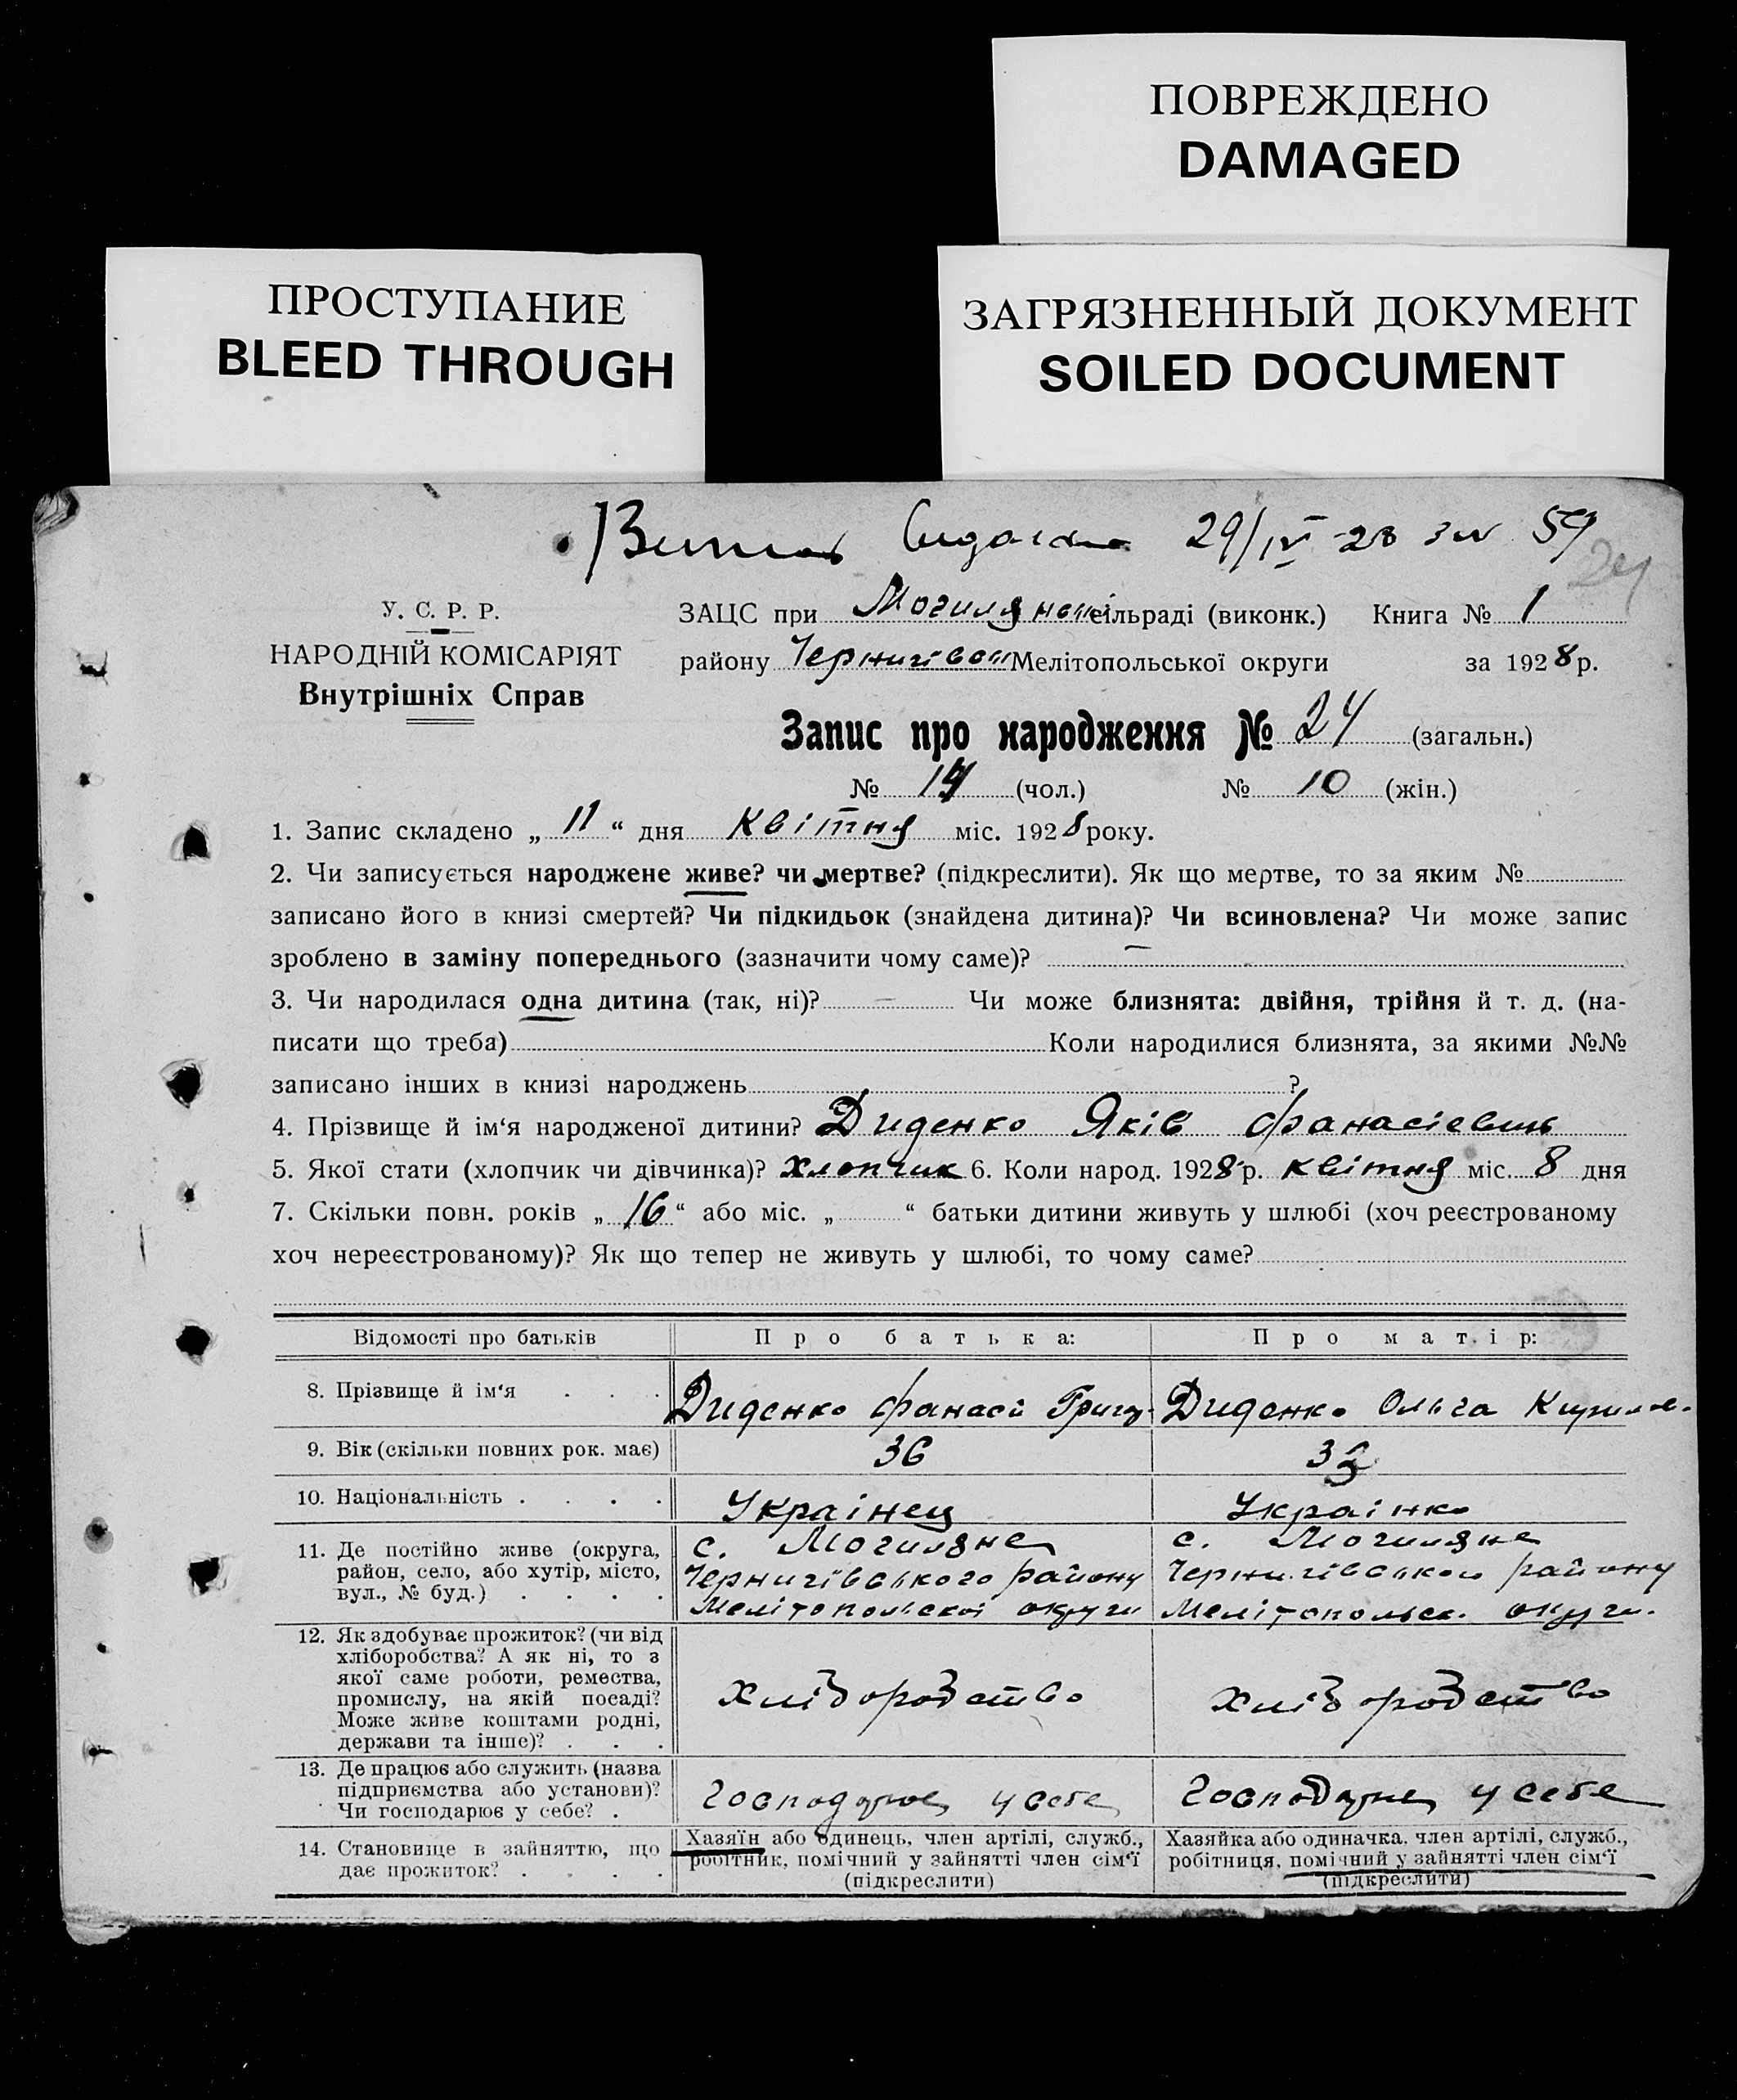 ПОВРЕЖДЕНО
DAMAGED
ПРОСТУПАНИЕ
BLEED THROUGH
ЗАГРЯЗНЕННЫЙ ДОКУМЕНТ
SOILED DOCUMENT
29/IV-28 зп 59
24
У. С. Р. Р.
НАРОДНІЙ КОМІСАРІЯТ
Внутрішніх Справ
ЗАЦС при Могилянській сільраді (виконк.) Книга № 1
району Чернигівськ Мелітопольської округи за 1928 р.
Запис про народження № 24 (загальн.)
№ 14 (чол.) № 10 (жін.)
1. Запис складено „ 11 “ дня Квітня міс. 1928 року.
2. Чи записується народжене живе? чи мертве? (підкреслити). Як що мертве, то за яким №
записано його в книзі смертей? Чи підкидьок (знайдена дитина)? Чи всиновлена? Чи може запис
зроблено в заміну попереднього (зазначити чому саме)? —
3. Чи народилася одна дитина (так, ні)? — Чи може близнята: двійня, трійня й т. д. (на-
писати що треба) Коли народилися близнята, за якими №№
записано інших в книзі народжень ?
4. Прізвище й ім‘я народженої дитини? Диденко Яків Фанасієвич
5. Якої стати (хлопчик чи дівчинка)? Хлопчик 6. Коли народ. 1928 р. Квітня міс. 8 дня
7. Скільки повн. років „ 16 “ або міс. „ “ батьки дитини живуть у шлюбі (хоч реєстрованому
хоч нереєстрованому)? Як що тепер не живуть у шлюбі, то чому саме?
Відомості про батьків
Про батька:
Про матір:
8. Прізвище й ім‘я . . .
Диденко Фанасій Григор.
Диденко Ольга Кирилл.
9. Вік (скільки повних рок. має)
36
10. Національність . . . .
Украінец
Украінка
11. Де постійно живе (округа,
район, село, або хутір, місто,
вул., № буд.) . . . .
с. Могиляне
Чернигівського району
Мелітопольської округи
с. Могиляне
Чернигівського району
Мелітопольськ. округи.
12. Як здобуває прожиток? (чи від
хліборобства? А як ні, то з
якої саме роботи, ремества,
промислу, на якій посаді?
Може живе коштами родні,
держави та інше)? . . .
Хліборобство
Хліборобство
13. Де працює або служить (назва
підприємства або установи)?
Чи господарює у себе? .
Господарює у себе
Господарює у себе
14. Становище в зайняттю, що
дає прожиток? . . . .
Хазяїн або одинець, член артілі, служб.,
робітник, помічний у зайнятті член сім‘ї
(підкреслити)
Хазяйка або одиначка, член артілі, служб.,
робітниця, помічний у зайнятті член сім‘ї
(підкреслити)